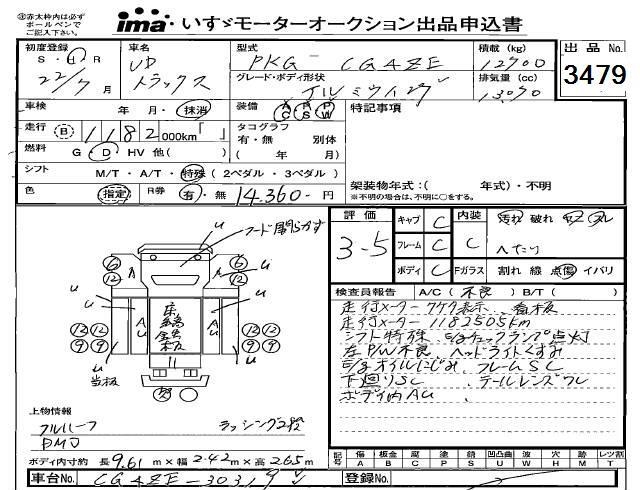 赤太枠内は必ず
ボールペンで
ご記入下さい
ima いすゞモーターオークション出品申込書
初度登録 車名 型式 積載 (kg) 出品No.
S・H・R UD PKG - CG4ZE 12700 3479
22/7月 トラックス グレード・ボディ形状 アルミウイング 排気量 (cc) 13070
車検 年・月・抹消 装備 AC PS PW 特記事項
走行 (B) 1182 000km「 」 タコグラフ
有・無 別体
燃料 G・D・HV 他( ) ( 年 月)
シフト M/T・A/T・特殊 (2ペダル・3ペダル) 架装物年式:( 年式)・不明
※不明の場合は、不明に○をする。
色 指定 R券 有・無 14,360- 円
評価 3-5 キャブ C 内装 C 汚れ 破れ コゲ スレ
フレーム C へたり
ボディ C Fガラス 割れ 線 点傷 イバリ
u フード開閉らかす
u u
6 6
12 12
u A A u
13 12 12 13
9 9 9 9
u u
当板
検査員報告 A/C ( 不良 ) B/T ( )
走行メーター 看板
走行メーター 1182505km
シフト特殊 E/gチェックランプ点灯
左P/W不良 ヘッドライトくすみ
E/gオイルにじみ フレームSC
下廻りSC テールレンズワレ
ボディ内AU
上物情報
フルハーフ ラッシング2段
PMJ
ボディ内寸約 長 9.61 m×幅 2.42 m×高 2.65 m
記号 傷 A 板金 B 腐 C 塗 P 錆 S 凹凸曲 U 波 W 穴 H 交換 X レツ割 T
車台No. CG4ZE-30319 登録No.